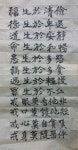 福生於清儉
德生於卑退
道生於安靜
命生於和暢
患生於多慾
禍生於多貪
過生於輕慢
罪生於不仁
戒眼莫看他非
戒口莫談他短
戒心莫自貪嗔
戒身莫隨惡伴